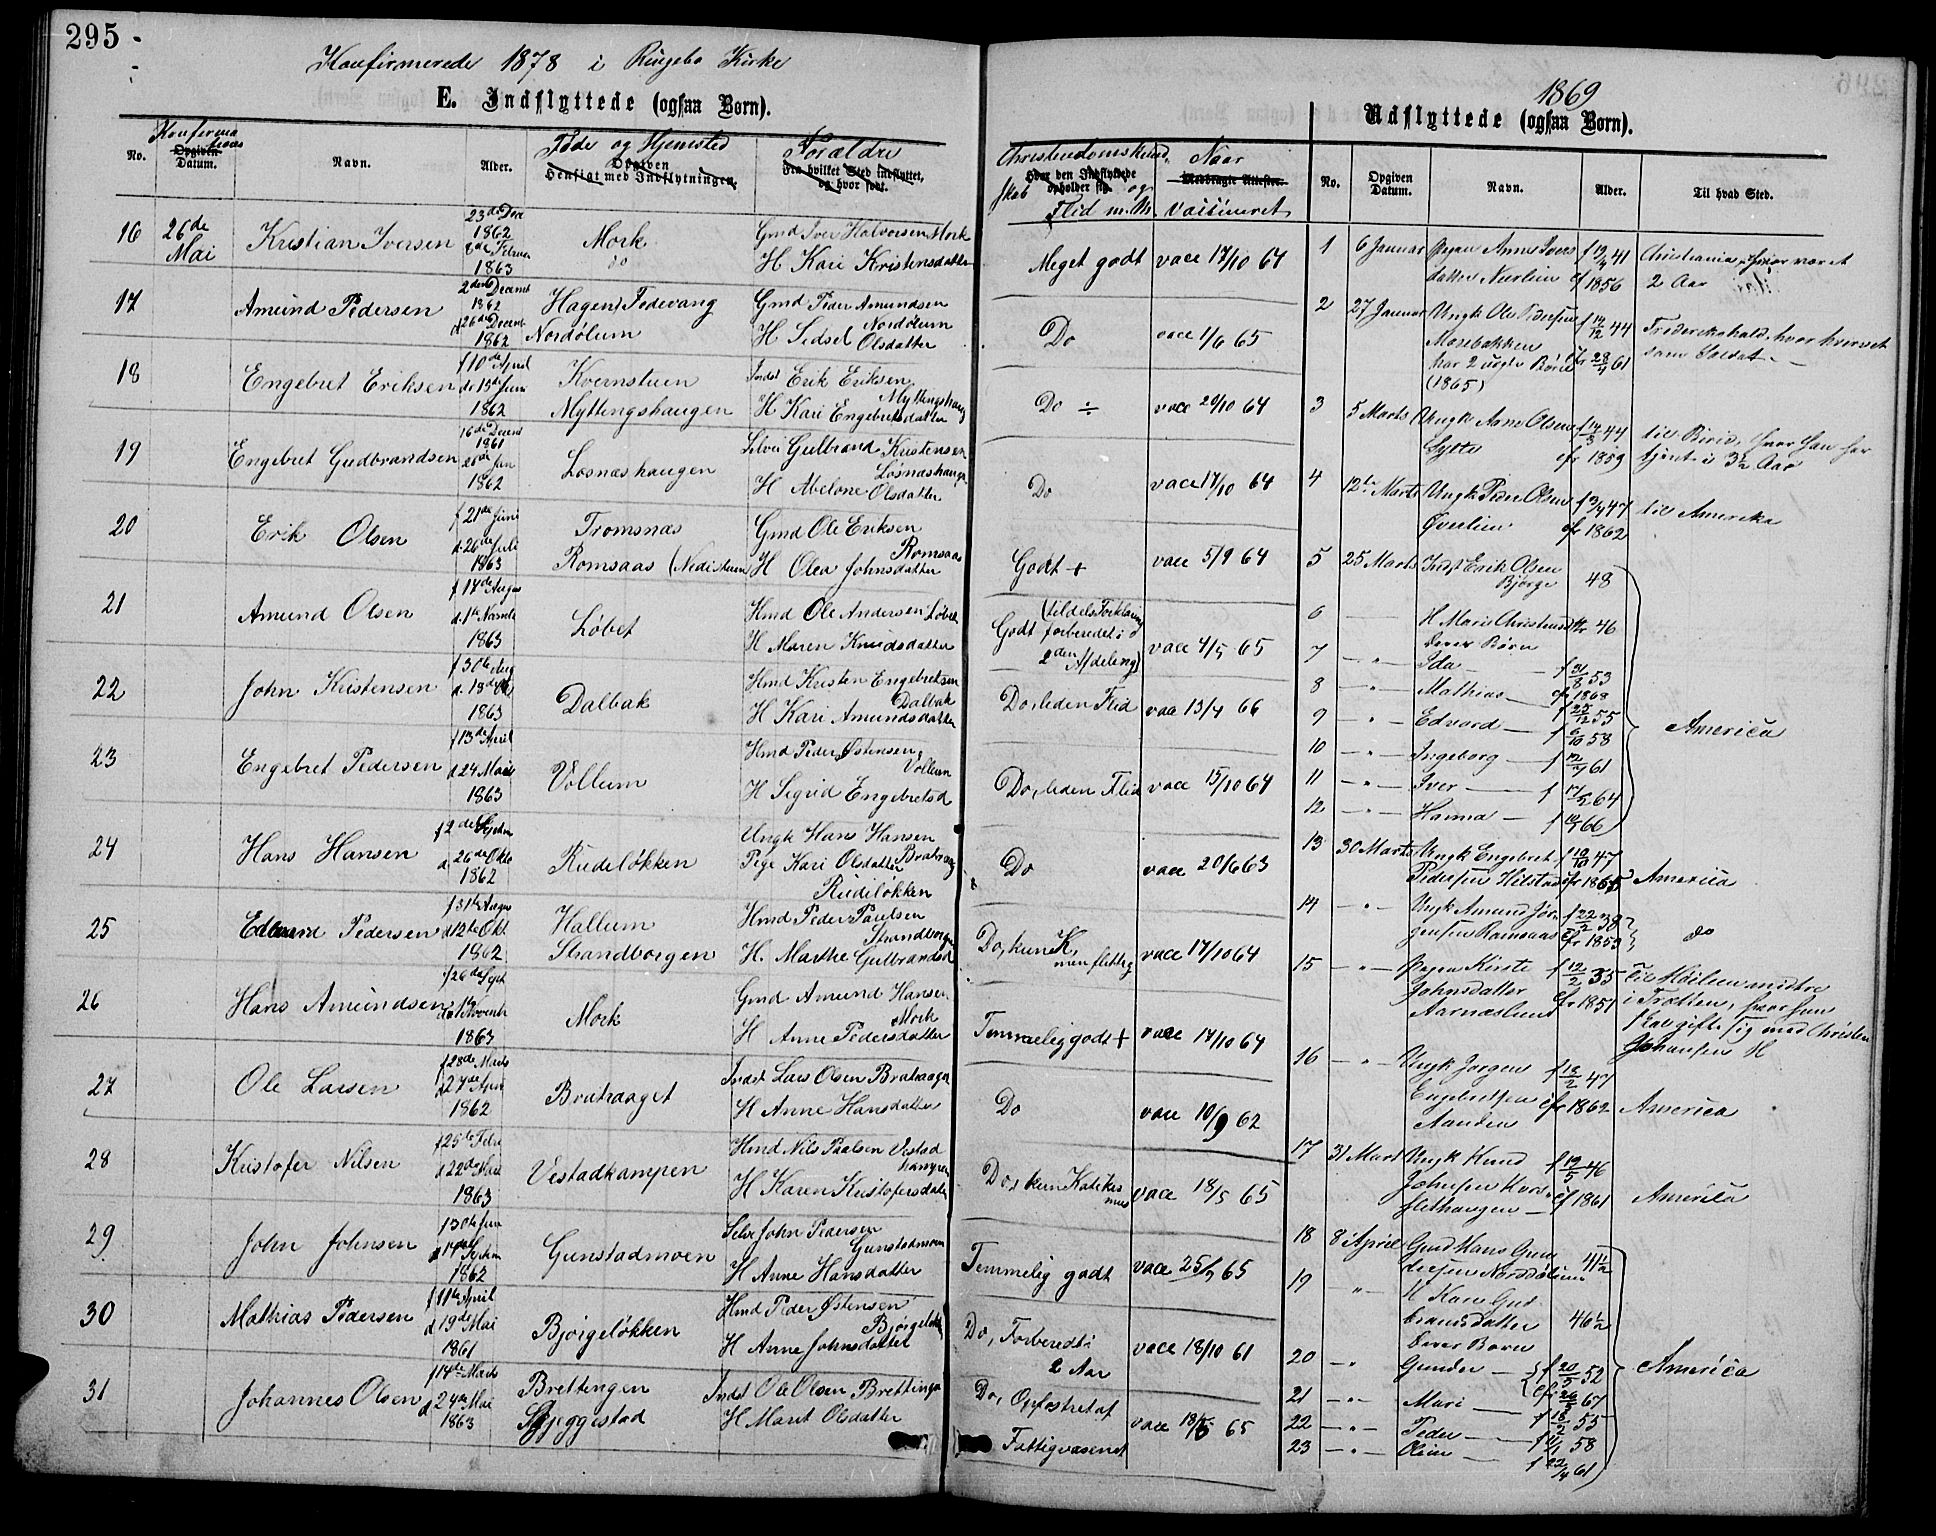 295
Konfirmerede 1878 i Ringebo Kirke
E. Indflyttede (ogsaa Børn).
No.
Konfirma
tions
Opgiven
Datum.
Navn.
Alder.
Føde og Hjemsted
Opgiven
Hensigt med Indflytningen.
Forældre
Fra hvilket Sted indflyttet,
og hvor født.
Christendomskund
skab og
Hvor den Indflyttede
opholder sig.
Flid m. M.
Naar
Medbragte Attester.
vaccineret
16 26de Mai Kristian Iversen 23de Dec 1862 8de Februar 1863 Mork do Gmd Iver Halvorsen Mork
H Kari Kristensdatter
Meget godt vacc 17/10 64
17 Amund Pedersen 2den Decemb 1862 d 26de Decemb 1862 Hagen, Fodevang
Nordølum
Gmd Peder Amundsen
Nordølum
H Sidsel Olsdatter
Do vacc 1/6 65
18 Engebret Eriksen f 10de April d 15de Juni 1862 Kvernstuen
Myttingshaugen
Indst Erik Eriksen
Myttingshaug
H Kari Engebretsdatter
Do ÷ vacc 20/10 64
19 Engebret Gudbrandsen 16de Decemb 1861 26de Jan 1862 Losnæshaugen
Selvei Gulbrand Kristensen
Løsnæshaugen
H Abelone Olsdatter
Do vacc 17/10 64
20 Erik Olsen f 21de Juni d. 26de Juli 1863 Tromsnæs
Romsaas (Nedistuen
Gmd Ole Eriksen
Romsaas
H Olea Johnsdatter
Godt + vacc 5/9 64
21 Amund Olsen f 17de August d. 1ste Novemb 1863 Løbet
Hmd Ole Andersen Løbet
H Maren Knudsdatter
Godt (tildels Forklaring
forberedt i
2den Afdeling)
vacc 4/5 65
22 John Kristensen f 30te Aug d. 18de 1863 Dalbak
Hmd Kristen Engebretsen
Dalbak
H Kari Amundsdatter
Do, liden Flid vacc 13/4 66
23 Engebret Pedersen f 13de April d 24 Mai 1863 Vollum
Hmd Peder Østensen
Vollum
H Sigrid Engebretsd
Do, liden Flid vacc 15/10 64
24 Hans Hansen f 2den Septem d 26de Okto 1862 Rudeløkken
Ungk Hans Hansen
Pige Kari Olsdatter Bratraag
Rudeløkken
Do vacc 20/6 63
25 Edvard Pedersen f 31te August d 12te Okt 1862 Hallum
Strandborgen
Hmd Peder Paulsen
Strandborgen
H. Marthe Gulbrandsd
Do, kun K,
men flittig
vacc 17/10 64
26 Hans Amundsen f 26de Sept d 1ste Novemb 1863 Mork
Gmd Amund Hansen
Mork
H Anne Pedersdatter
Temmelig godt + vacc 17/10 64
27 Ole Larsen f 28de Marts d 27de April 1862 Bratraaget
Indst Lars Olsen Bratraaget
H Anne Hansdatter
Do vacc 10/9 62
28 Kristofer Nilsen f 25te Febr d 22de Marts 1863 Vestadkampen
Hmd Nils Paulsen Vestad
kampen
H Karen Kristofersdatter
Do, kun Katekis
mus
vacc 18/5 65
29 John Johnsen f 30te Juni d 14de Septem 1862 Gunstadmoen
Selv John Pedersen
Gunstadmoen
H Anne Hansdatter
Temmelig godt vacc 25/9 65
30 Mathias Pedersen f 11te April d 19de Mai 1861 Bjørgeløkken
Hmd Peder Østensen
Bjørgeløk
H Anne Johnsdatter
Do, Forberedt i
2 Aar
vacc 18/10 61
31 Johannes Olsen f 14de Marts d 24de Mai 1863 Brettingen
Skjeggestad
Indst Ole Olsen Brettingen
H Marit Olsdatter
Do, Opfostret af
Fattigvæsenet
vacc 18/5 65
1869
Udflyttede (ogsaa Børn).
No.
Opgiven
Datum.
Navn.
Alder.
Til hvad Sted.
1 6 Januar Pigen Anne Ivers
datter Nerlien
f 19/4 41
cf 1856
Christiania, hvor været
2 Aar
2 27 Januar Ungk Ole Pedersen
Mosebakken
har 2 uægte Børn
(1865)
f 14/12 44
cfr 28/4 61
Frederikshald, hvor hvervet
som Soldat.
3 5 Marts Ungk Arne Olsen
Lytte
f 14/3 44
cfr 1859
til Birid, hvor han har
tjent i 3½ Aar
4 12te Marts Ungk Peder Olsen
Øverlien
f 9/4 47
cfr 1862
til Amerika
5 25 Marts Indst Erik Olsen
Bjørge 48
6 H Marie Christiansdtr 46
deres Børn
7 Ida f 31/8 53
cfr 1868
8 Mathias f 25/12 55
9 Edvard f 6/10 58
10 Ingeborg f 12/7 61
11 Iver f 17/5 64
12 Hanna f 10/7 66
America
13 30 Marts Ungk Engebret
Pedersen Hilstad
f 10/10 47
cfr 1865
America
14 Ungk Amund Jør
gensen Romsaas
f 22/2 38
cfr 1853
do
15 Pigen Kirsti
Johnsdatter
Aarnæslund
f 12/2 35
cfr 1851
til Moilien nistre
i Trætten, hvor hun
skal gifte sig med Christen
Johansen H
16 Ungk Jørgen
Engebretsen
Aanden
f 18/2 47
cfr 1862
America
17 31 Marts Ungk Knud
Johnsen Kvæ
slethaugen
f 19/5 46
cf 1861
America
18 8 April Gmd Hans Gun
dersen Norddølum 41½
19 H Kari Gud
brandsdatter 46½
deres Børn
20 Gunder f 20/5 52
cfr 26/5 67
21 Mari f 18/2 55
22 Peder f 11/1 58
23 Oline f 22/4 61
America